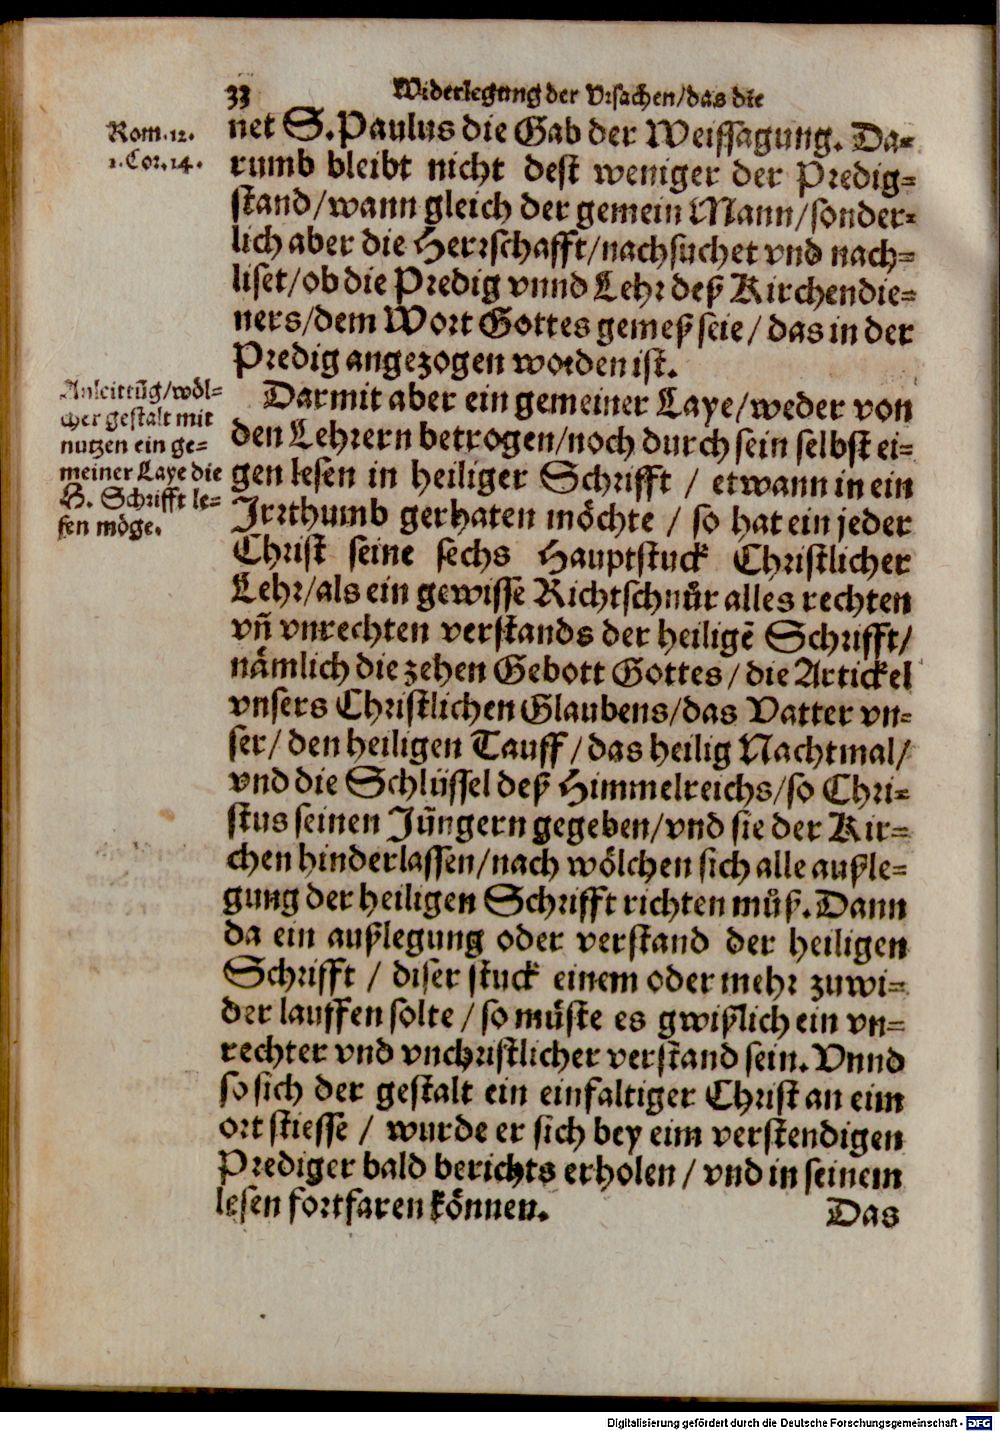 33 Widerlegung der Vrsachen/das die
Rom.12.
1.Cor.14.
net S.Paulus die Gab der Weissagung. Da-
rumb bleibt nicht dest weniger der Predig-
stand/wann gleich der gemein Mann/sonder-
lich aber die Herrschafft/nachsuchet vnd nach-
liset/ob die Predig vnnd Lehr deß Kirchendie-
ners/dem Wort Gottes gemeß seie/das in der
Predig angezogen worden ist.
Anleittũg/wöl-
cher gestalt mit
nutzen ein ge-
meiner Laye die
H. Schrifft le-
sen möge.
Darmit aber ein gemeiner Laye/weder von
den Lehrern betrogen/noch durch sein selbst ei-
gen lesen in heiliger Schrifft / etwann in ein
Irrthumb gerhaten möchte / so hat ein jeder
Christ seine sechs Hauptstuck Christlicher
Lehr/als ein gewisse Richtschnůr alles rechten
vñ vnrechten verstands der heiligẽ Schrifft/
nämlich die zehen Gebott Gottes/die Artickel
vnsers Christlichen Glaubens/das Vatter vn-
ser/den heiligen Tauff/das heilig Nachtmal/
vnd die Schlüssel deß Himmelreichs/so Chri-
stus seinen Jüngern gegeben/vnd sie der Kir-
chen hinderlassen/nach wölchen sich alle außle-
gung der heiligen Schrifft richten můß. Dann
da ein außlegung oder verstand der heiligen
Schrifft / diser stuck einem oder mehr zuwi-
der lauffen solte / so müste es gwißlich ein vn-
rechter vnd vnchristlicher verstand sein. Vnnd
so sich der gestalt ein einfaltiger Christ an eim
ort stiesse / wurde er sich bey eim verstendigen
Prediger bald berichts erholen / vnd in seinem
lesen fortfaren können.
Das
Digitalisierung gefördert durch die Deutsche Forschungsgemeinschaft - DFG